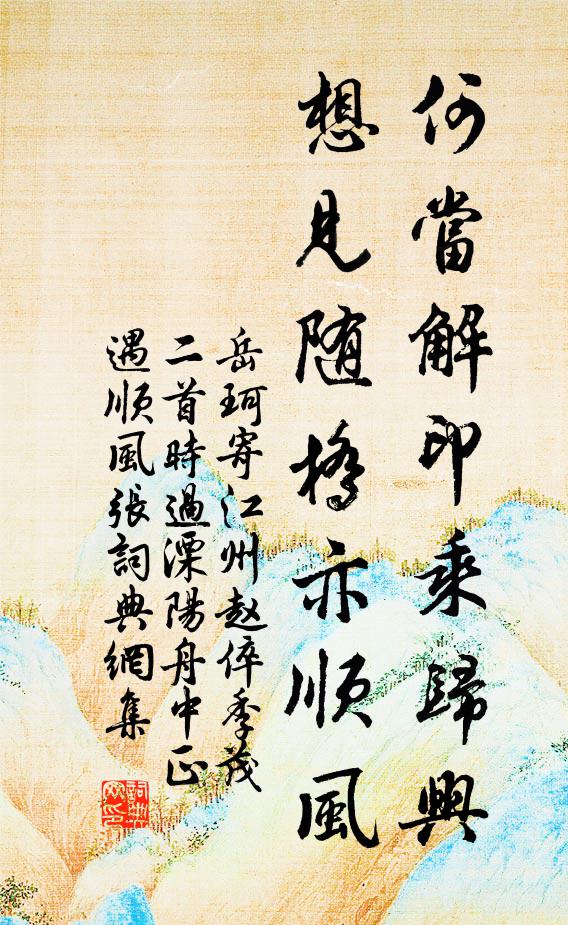 何當解印乘歸興
想見随檣亦順風
岳珂寄江州赵倅季茂
二首時過溧陽舟中正
遇順風張詞典網集
詞典網印